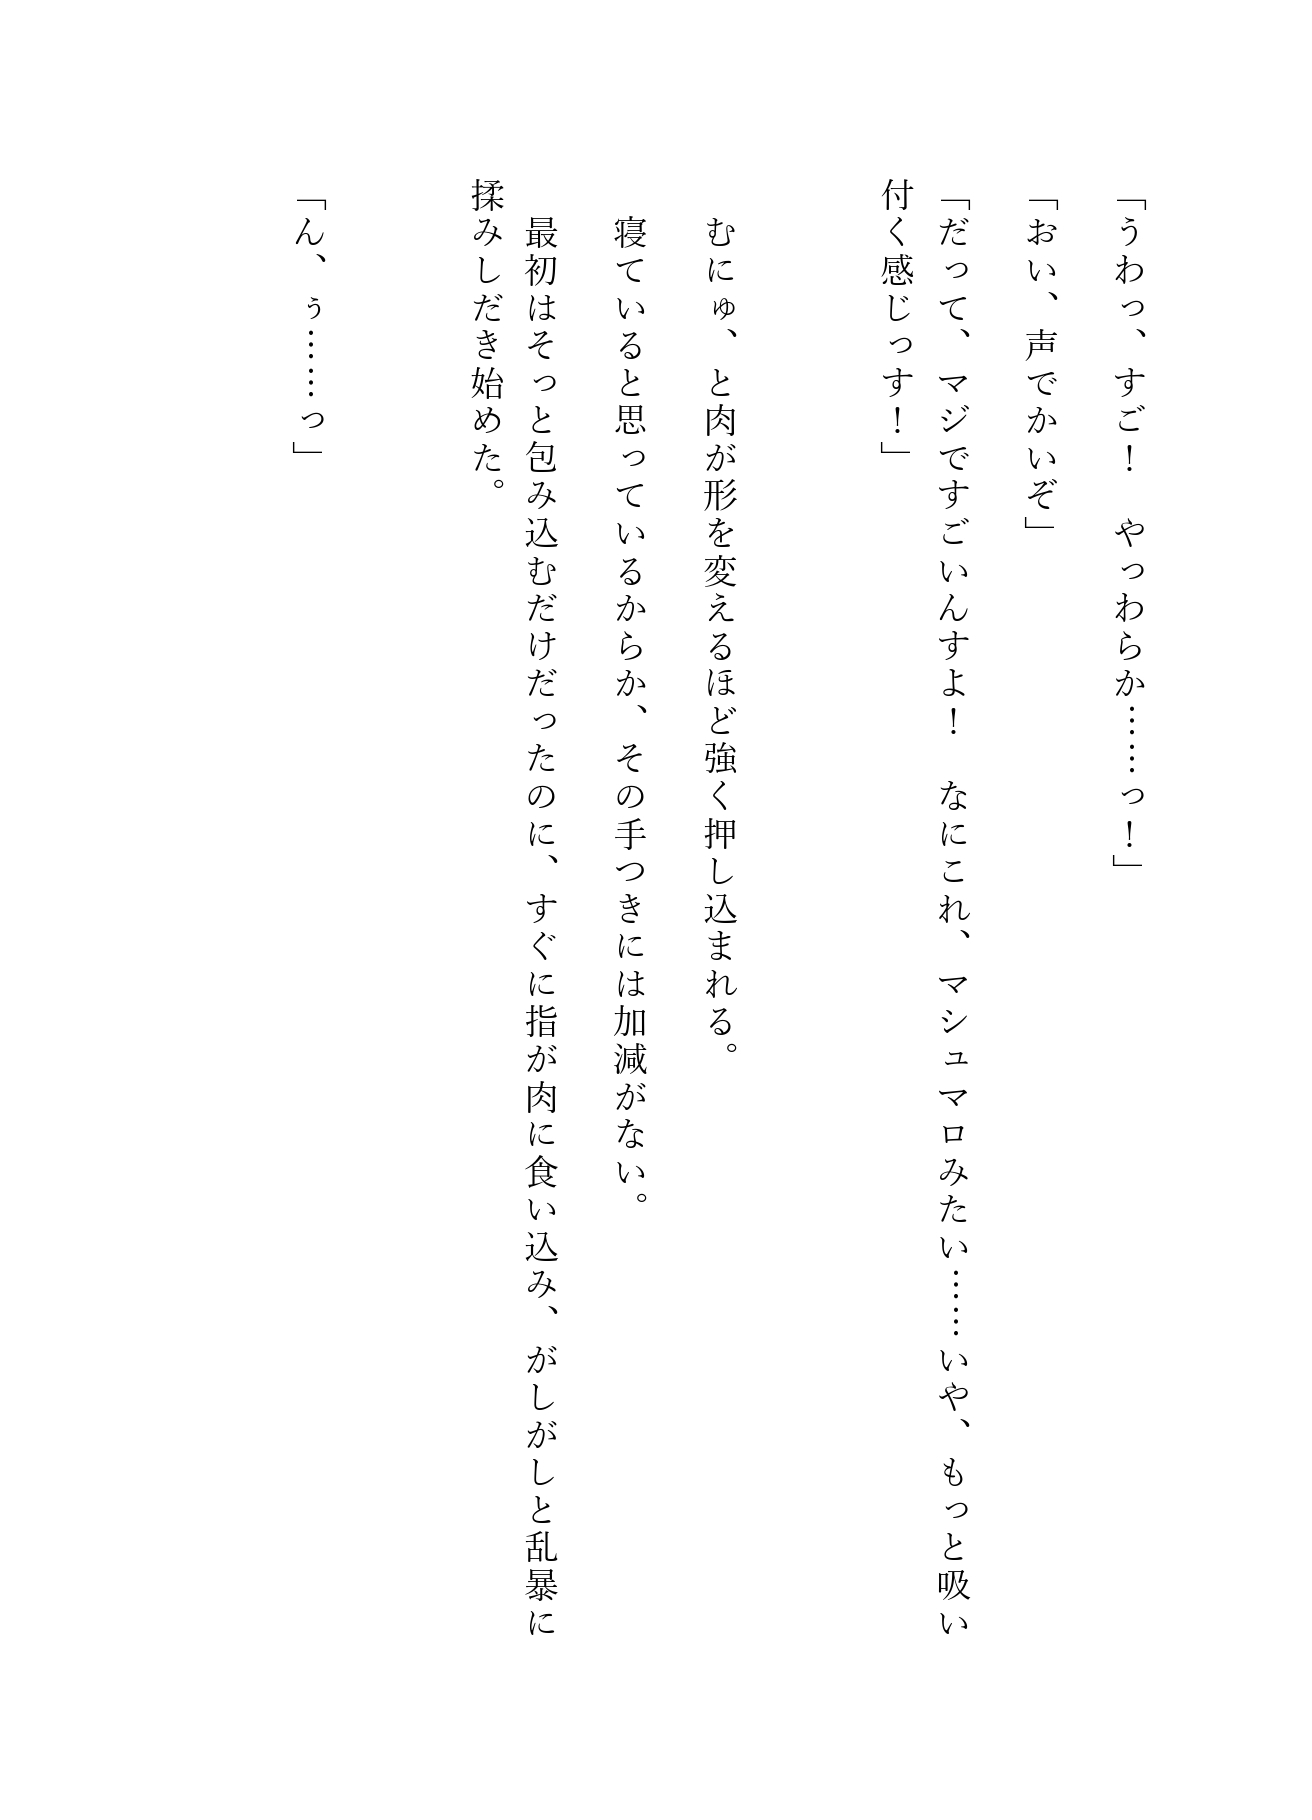 「うわっ、すご！　やっわらか……っ！」
「おい、声でかいぞ」
「だって、マジですごいんすよ！　なにこれ、マシュマロみたい……いや、もっと吸い
付く感じっす！」
　むにゅ、と肉が形を変えるほど強く押し込まれる。
　寝ていると思っているからか、その手つきには加減がない。
　最初はそっと包み込むだけだったのに、すぐに指が肉に食い込み、がしがしと乱暴に
揉みしだき始めた。
「ん、ぅ……っ」